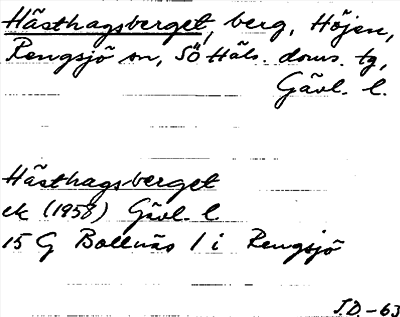 Hästhagsberget, berg, Höjen,
Rengsjö sn, SÖ Häls. doms. tg,
Gävl. l.
Hästhagsberget
ek (1958) Gävl. l
15 G Bollnäs 1 i Rengsjö
J.D.-63